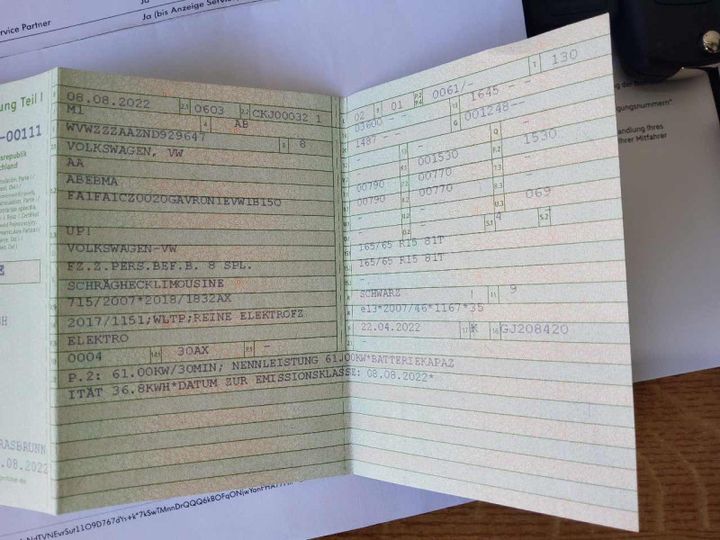 rvice Partner
Ja
Ja (bis Anzeige Servic
ung Teil I
-00111
esrepublik
chland
RASBRUNN
.08.2022
08.08.2022 2.1 0603 2.2 CKJ00032 1
M1 4 AB
WVWZZZAAZND929647 3 8
VOLKSWAGEN, VW
AA
ABEBMA
FA1FA1CZ0020GAVR0N1EVW1B150
UP!
VOLKSWAGEN-VW
FZ.Z.PERS.BEF.B. 8 SPL.
SCHRÄGHECKLIMOUSINE
715/2007*2018/1832AX
2017/1151;WLTP;REINE ELEKTROFZ
ELEKTRO
0004 30AX -
P.2: 61.00KW/30MIN; NENNLEISTUNG 61.00KW*BATTERIEKAPAZ
ITÄT 36.8KWH*DATUM ZUR EMISSIONSKLASSE: 08.08.2022*
02 9 01 P.2 P.4 0061/- T 130
03600 - - 1645
1487 - - G 001248--
- - Q -
- 001530 1530
00790 00770 -
00790 00770 -
- - U.3 069
- 4 S.2 -
165/65 R15 81T
165/65 R15 81T
-
SCHWARZ 9
e13*2007/46*1167*35
22.04.2022 17 K 16 GJ208420
-
gungsnummern"
andlung Ihres
hrer Mitfahrer